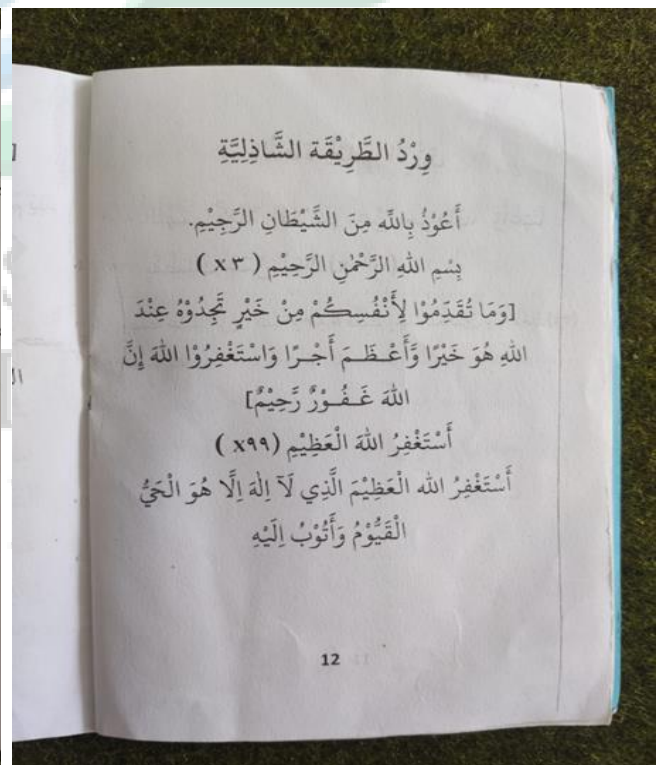 وِرْدُ الطَّرِيْقَة الشَّاذِلِيَّةِ
أَعُوْذُ بِاللّٰه مِنَ الشَّيْطَانِ الرَّجِيْمِ.
بِسْمِ اللهِ الرَّحْمٰنِ الرَّحِيْمِ ( x٣ )
[وَمَا تُقَدِّمُوْا لِأَنْفُسِكُمْ مِنْ خَيْرٍ تَجِدُوْهُ عِنْدَ
اللهِ هُوَ خَيْرًا وَّأَعْظَمَ أَجْرًا وَاسْتَغْفِرُوْا اللهَ إِنَّ
اللهَ غَفُوْرٌ رَّحِيْمٌ]
أَسْتَغْفِرُ اللهَ الْعَظِيْمِ (x٩٩ )
أَسْتَغْفِرُ الله الْعَظِيْمَ الَّذِي لَآ اِلٰهَ اِلَّا هُوَ الْحَيُّ
الْقَيُّوْمُ وَأَتُوْبُ اِلَيْهِ
12